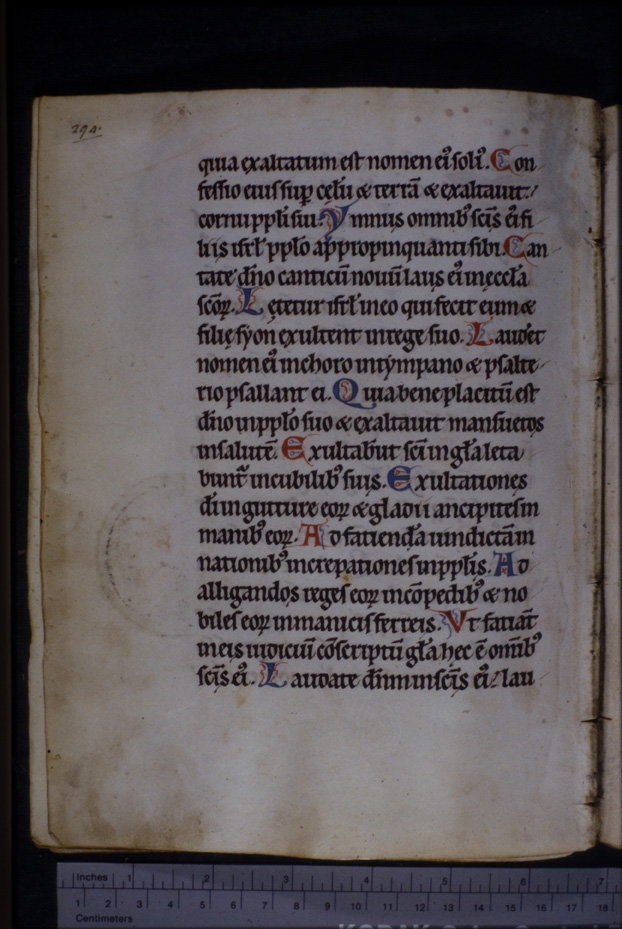 294.
qua exaltatum est nomen ei᾽ soli᾽. Con
fessio eius sup̱ celū & terrā & exaltauit:
cornu ppl̄i sui. Ymnus omnib᾽ sc̄is ei᾽ fi
liis isrl̄ ppl̄o appropinquanti sibi. Can
tate dn̄o canticū nouū laus ei᾽ in eccl̄a
sc̄oꝝ. Letetur isrl̄ in eo qui fecit eum &
filie syon exultent in rege suo. Laudēt
nomen ei᾽ in choro in tympano & psalte
rio psallant ei. Quia beneplacitū est
dn̄o in ppl̄o suo & exaltauit mansuetos
in salutē. Exultabūt sc̄i in gl̄a leta
bunt᾽ in cubilib᾽ suis. Exultationes
dī in gutture eoꝝ & gladii ancipites in
manib᾽ eoꝝ. Ad faciendā uindictā in
nationib᾽ increpationes in ppl̄is. Ad
alligandos reges eoꝝ in cōpedib᾽ & no
biles eoꝝ in manicis ferreis. Vt faciāt
in eis iudiciū cōscriptū gl̄a hec ē omīb᾽
sc̄is ei᾽. Laudate dn̄m in sc̄is ei᾽ lau
Inches 1 2 3 4 5 6 7
1 2 3 4 5 6 7 8 9 10 11 12 13 14 15 16 17 18
Centimeters